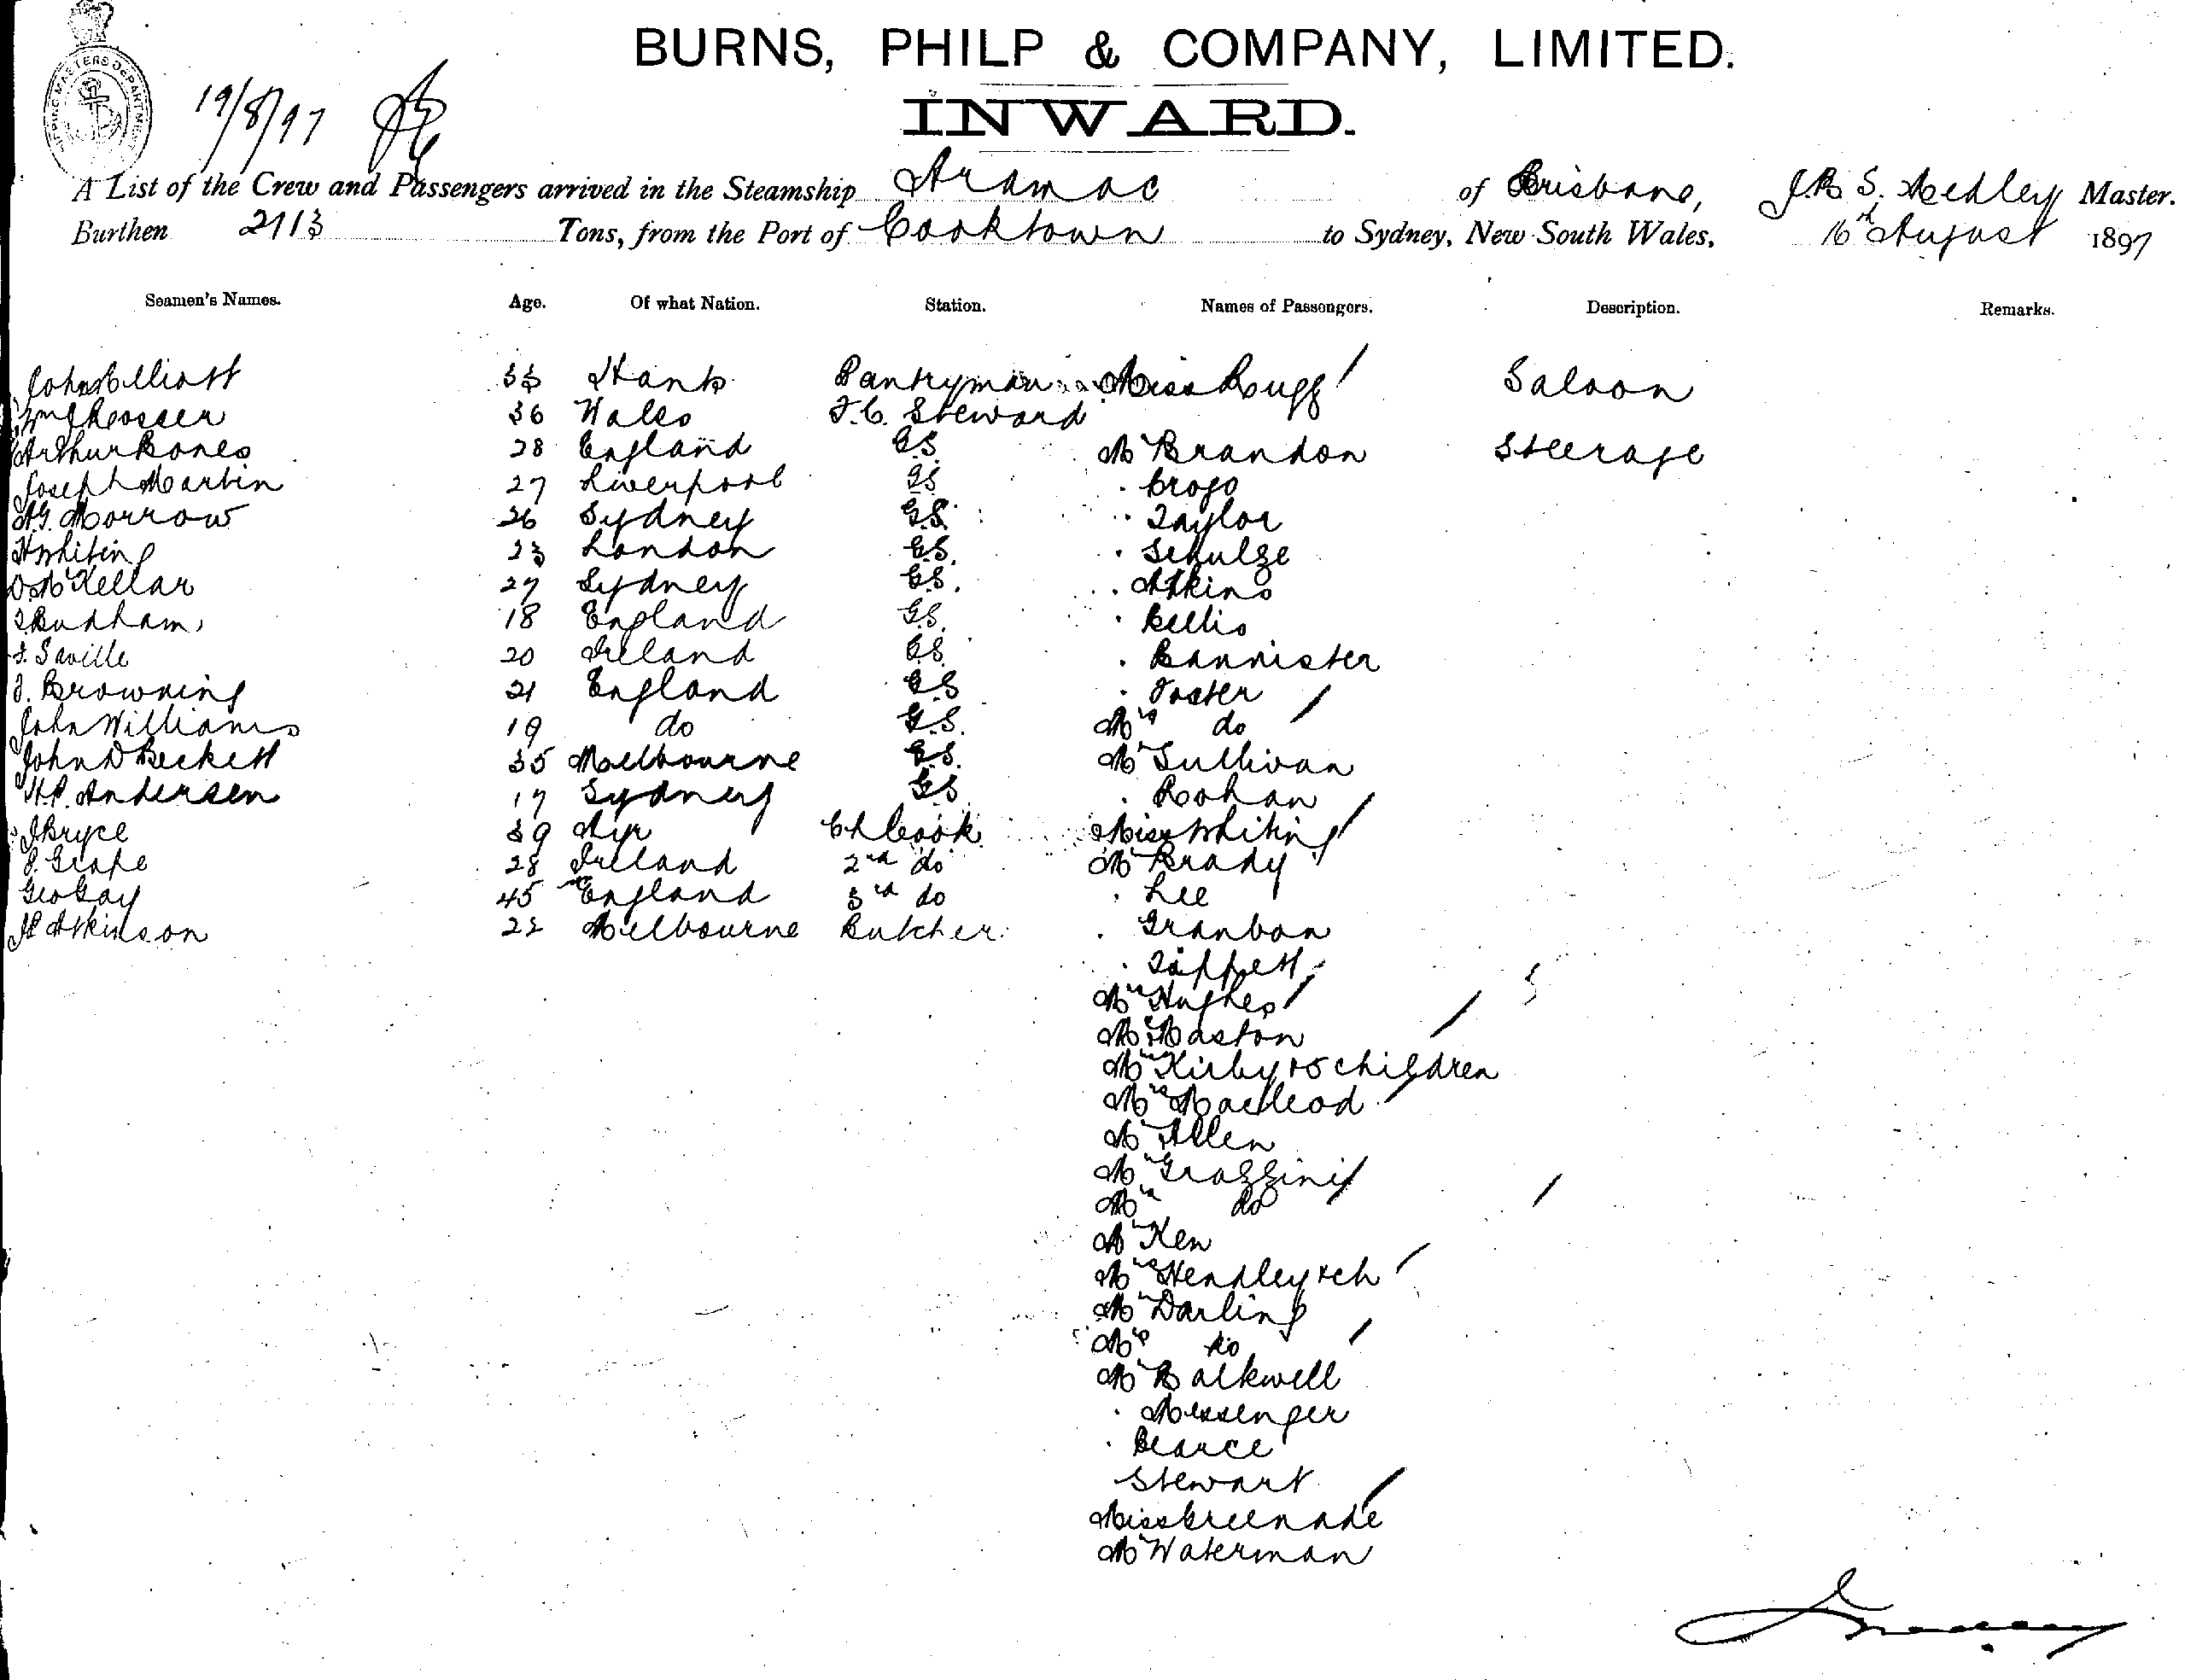 BURNS, PHILP & COMPANY, LIMITED.
INWARD.
19/8/97
A List of the Crew and Passengers arrived in the Steamship Aramac of Brisbane, J.B. S. Medley Master.
Burthen 2113 Tons, from the Port of Cooktown to Sydney, New South Wales, 16th August 1897
Seamen's Names. Age. Of what Nation. Station. Names of Passengers. Description. Remarks.
John Elliott 33 Hants Pantryman Miss Rugg Saloon
Wm Prosser 36 Wales F.C. Steward
Arthur Bones 28 England G.S. Mr Brandon Steerage
Joseph Martin 27 Liverpool G.S. " Crojo
A.G. Morrow 26 Sydney G.S. " Taylor
H Whiting 23 London G.S. " Schulze
D McKellar 27 Sydney G.S. " Atkins
Budham 18 England G.S. " Bellis
Saville 20 Ireland G.S. " Bannister
Browning 21 England G.S. " Foster
John Williams 19 do G.S. Mrs do
John D Beckett 35 Melbourne G.S. Mr Sullivan
H.P. Andersen 17 Sydney G.S. " Rohan
J Bryce 39 Ayr Ch Cook Miss Whiting
P. Grape 28 Ireland 2nd do Mr Brady
Geo Gay 45 England 3rd do " Lee
Atkinson 22 Melbourne Butcher " Granbon
" Tippett
Mrs Hughes
Mr Maston
Mrs Kirby & 5 children
Mrs Macleod
Mr Allen
Mr Grazzini
Mrs do
Mr Ken
Mrs Hendley & ch
Mr Darling
Mrs do
Mr Balkwell
" Messenger
" Pearce
Stewart
Miss Greenade
Mr Waterman